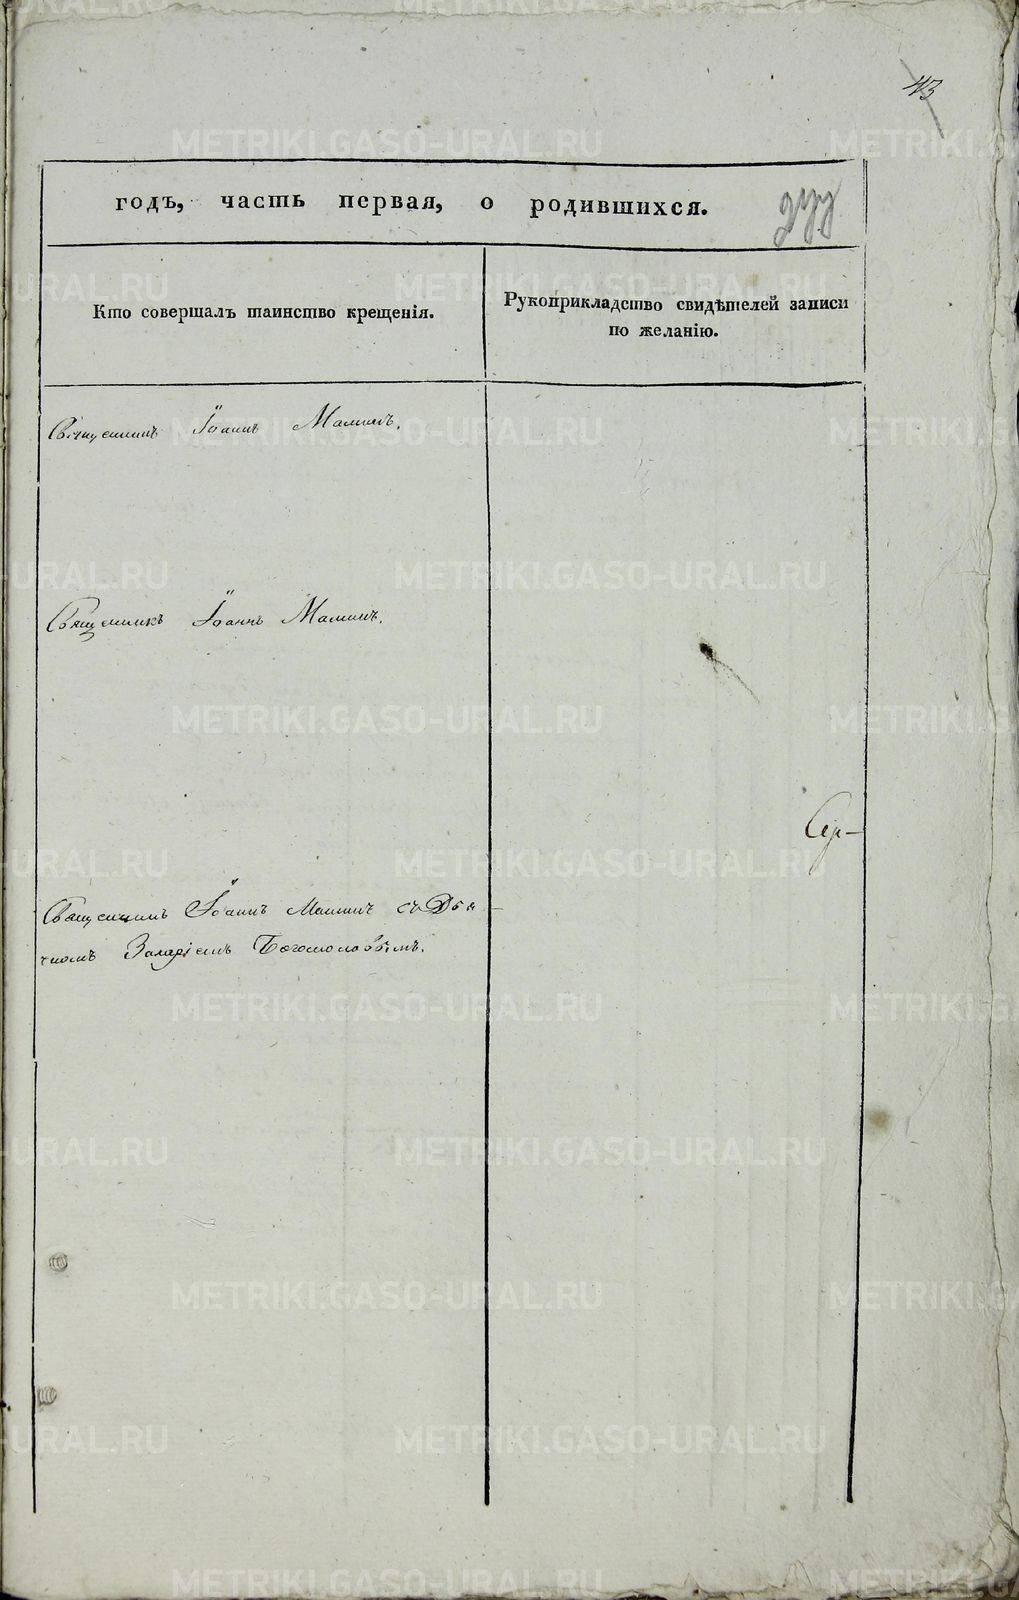 43
годъ, часть первая, о родившихся.
Кто совершалъ таинство крещенія.
Рукоприкладство свидѣтелей записи
по желанію.
Священникъ Іоаннъ Маминъ.
Священникъ Іоаннъ Маминъ.
Священникъ Іоаннъ Маминъ съ Дья-
чкомъ Захаріемъ Богомоловымъ.
METRIKI.GASO-URAL.RU